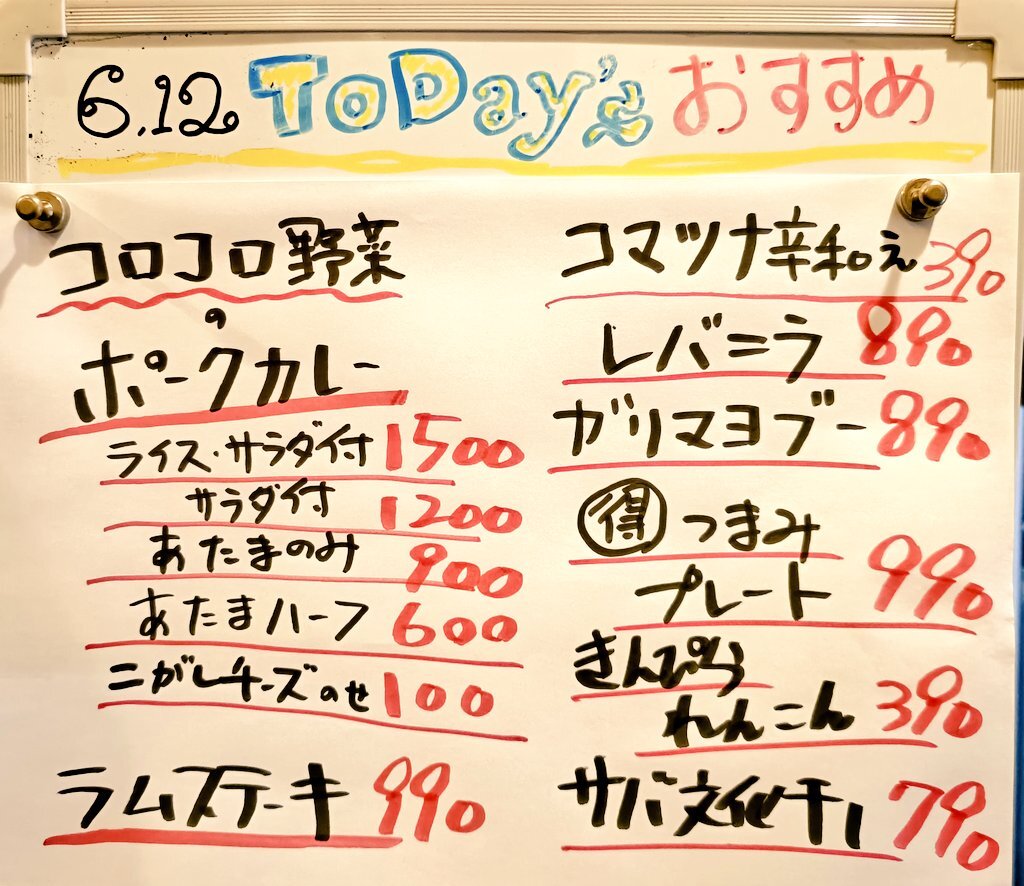 6.12 ToDay's おすすめ
コロコロ野菜
の
ポークカレー
ライス・サラダ付 1500
サラダ付 1200
あたまのみ 900
あたまハーフ 600
こがしチーズのせ 100
ラムステーキ 990
コマツナ辛和え 390
レバニラ 890
ガリマヨブー 890
得 つまみ
プレート 990
きんぴら
れんこん 390
サバ文化干し 790